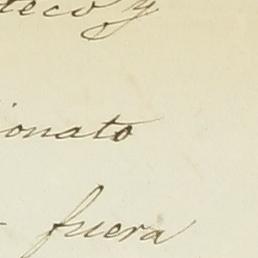 teco y
ionato
fuera